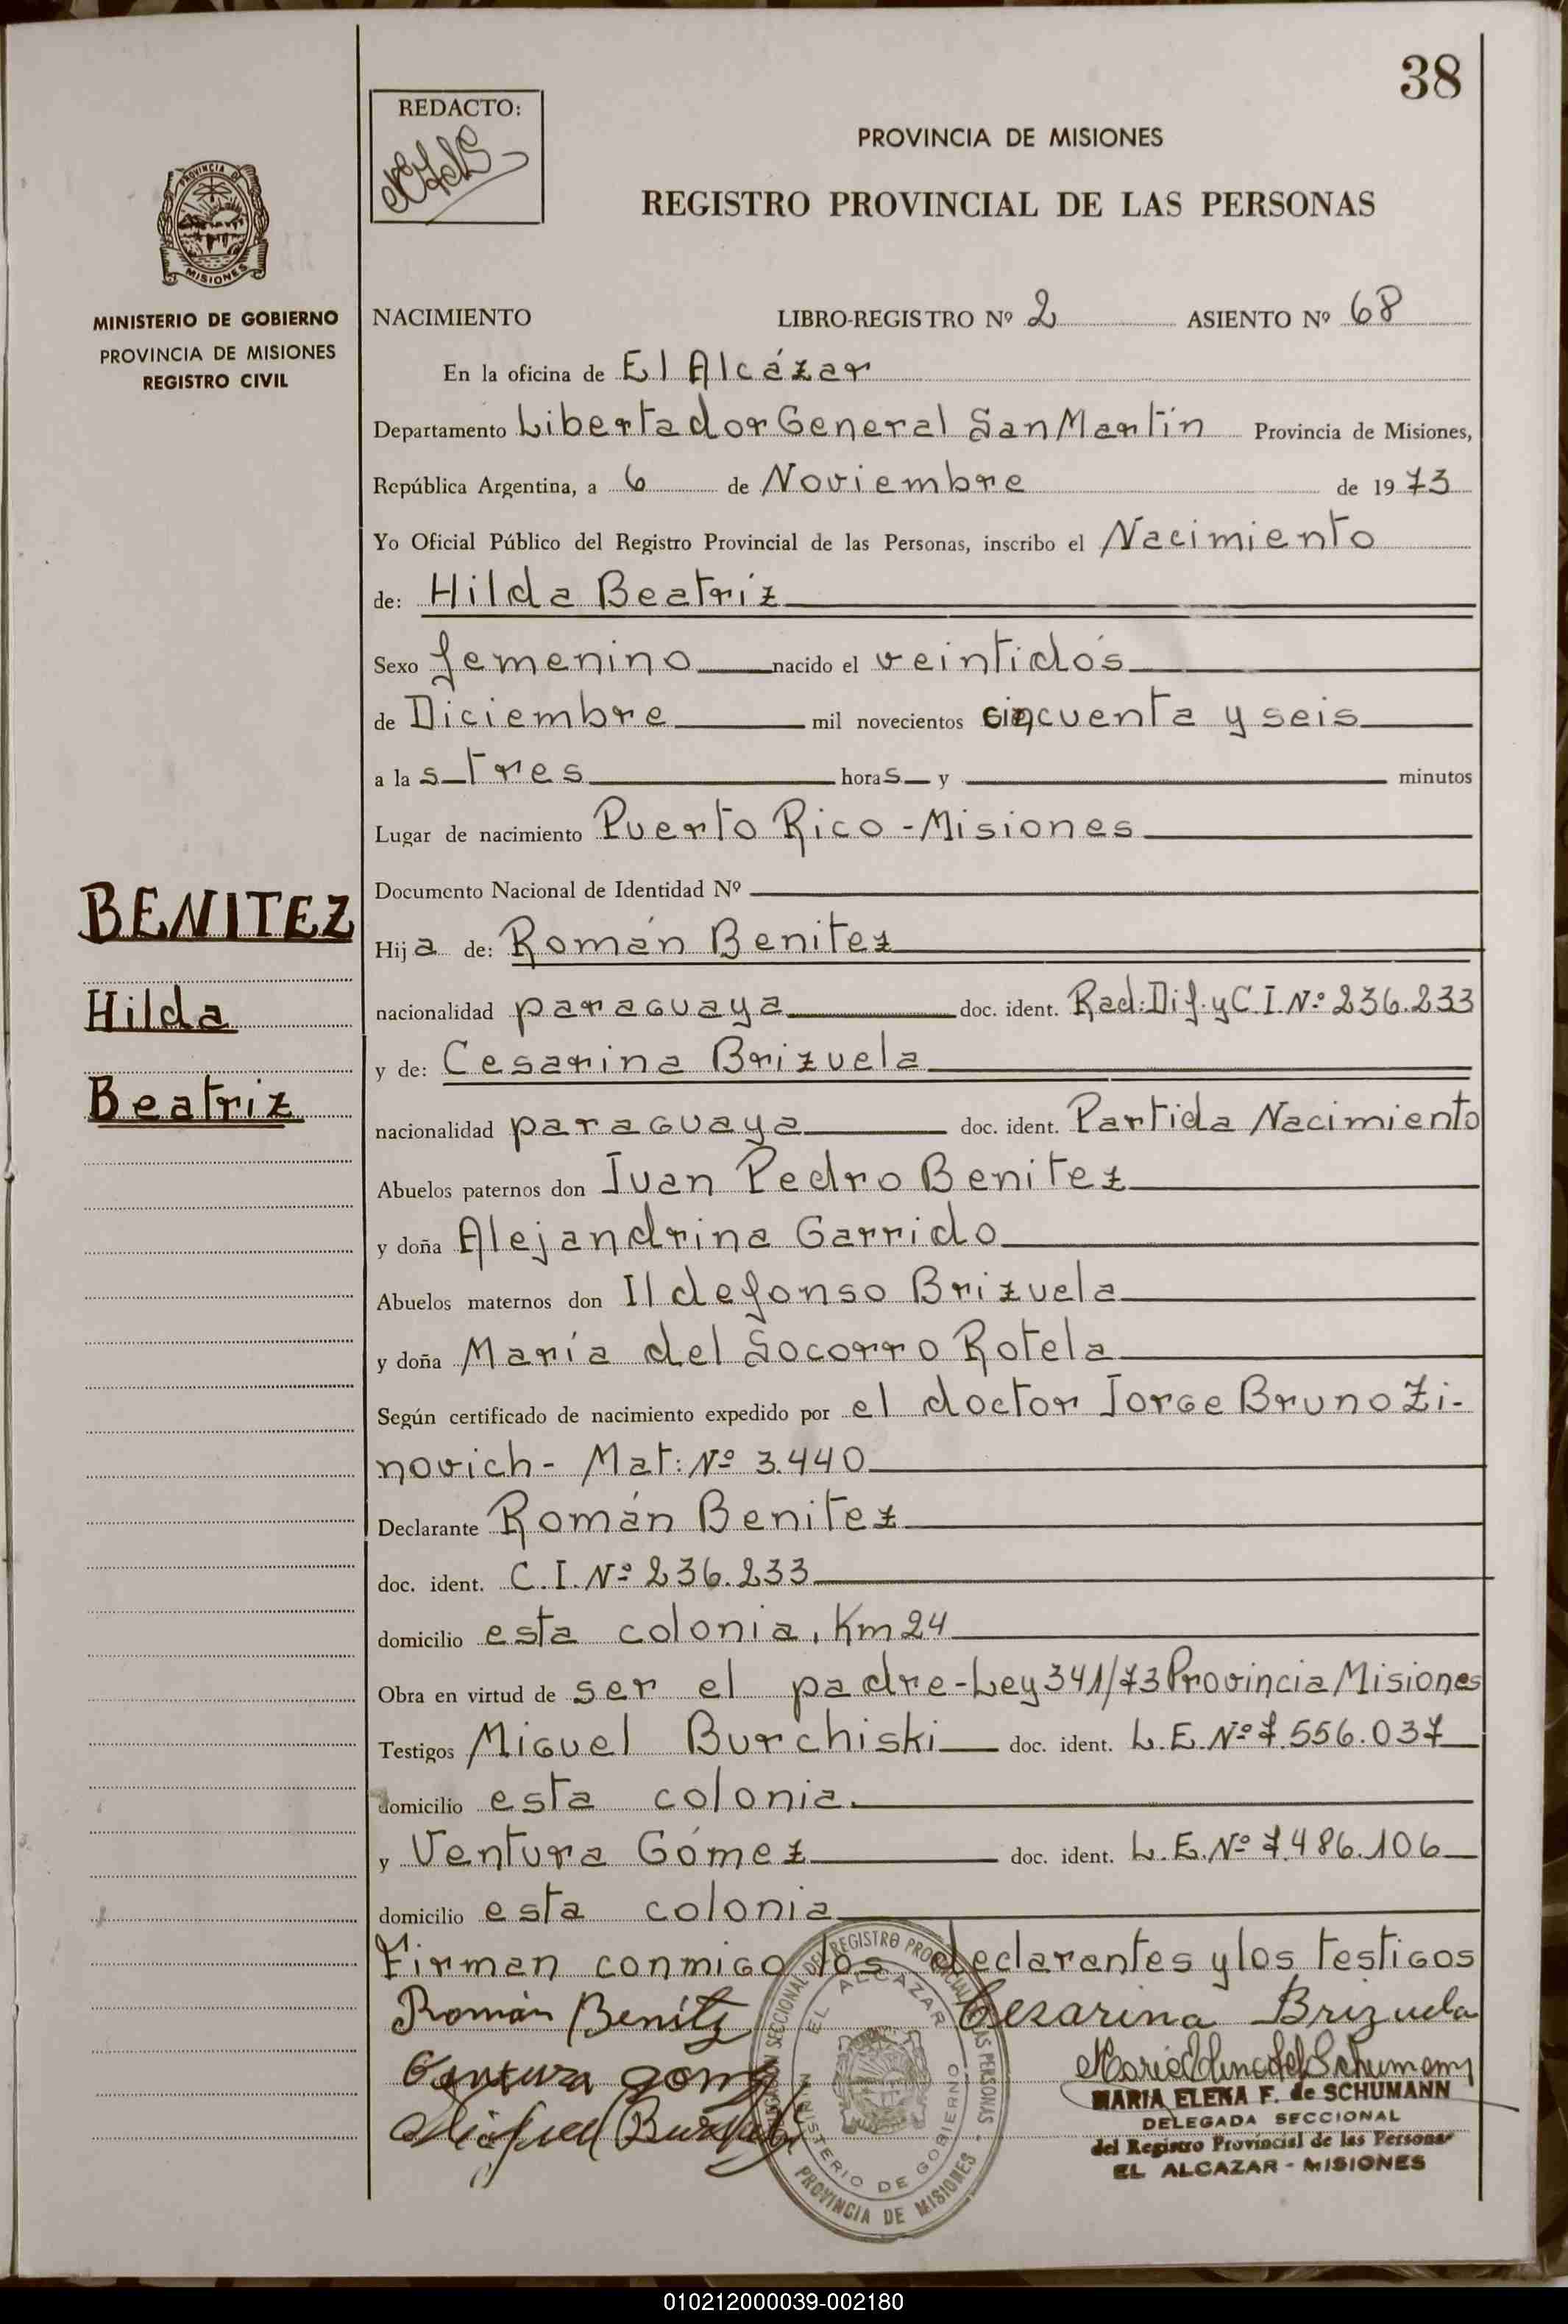 38
REDACTO:
PROVINCIA DE MISIONES
REGISTRO PROVINCIAL DE LAS PERSONAS
PROVINCIA D
MISIONES
MINISTERIO DE GOBIERNO
PROVINCIA DE MISIONES
REGISTRO CIVIL
NACIMIENTO LIBRO-REGISTRO Nº 2 ASIENTO Nº 68
En la oficina de El Alcázar
Departamento Libertador General San Martín Provincia de Misiones,
República Argentina, a 6 de Noviembre de 1973
Yo Oficial Público del Registro Provincial de las Personas, inscribo el Nacimiento
de: Hilda Beatríz
Sexo femenino nacido el veintidós
de Diciembre mil novecientos cincuenta y seis
a las tres horas y minutos
Lugar de nacimiento Puerto Rico - Misiones
Documento Nacional de Identidad Nº
BENITEZ
Hija de: Román Benitez
Hilda
nacionalidad paraguaya doc. ident. Rad: Dif. y C.I. Nº 236.233
y de: Cesarina Brizuela
Beatriz
nacionalidad paraguaya doc. ident. Partida Nacimiento
Abuelos paternos don Juan Pedro Benitez
y doña Alejandrina Garrido
Abuelos maternos don Ildefonso Brizuela
y doña María del Socorro Rotela
Según certificado de nacimiento expedido por el doctor Jorge Bruno Zi-
novich - Mat: Nº 3.440
Declarante Román Benitez
doc. ident. C.I. Nº 236.233
domicilio esta colonia, Km 24
Obra en virtud de ser el padre - Ley 341/73 Provincia Misiones
Testigos Miguel Burchiski doc. ident. L.E. Nº 7.556.037
domicilio esta colonia.
y Ventura Gómez doc. ident. L.E. Nº 7.486.106
domicilio esta colonia
Firman conmigo los declarantes y los testigos
Román Benítz Cesarina Brizuela
Ventura gomz
Miguel
SECCIONAL DEL REGISTRO PROVINCIAL DE LAS PERSONAS - PROVINCIA DE MISIONES
EL ALCAZAR
MINISTERIO DE GOBIERNO
MARIA ELENA F. de SCHUMANN
DELEGADA SECCIONAL
del Registro Provincial de las Personas
EL ALCAZAR - MISIONES
010212000039-002180